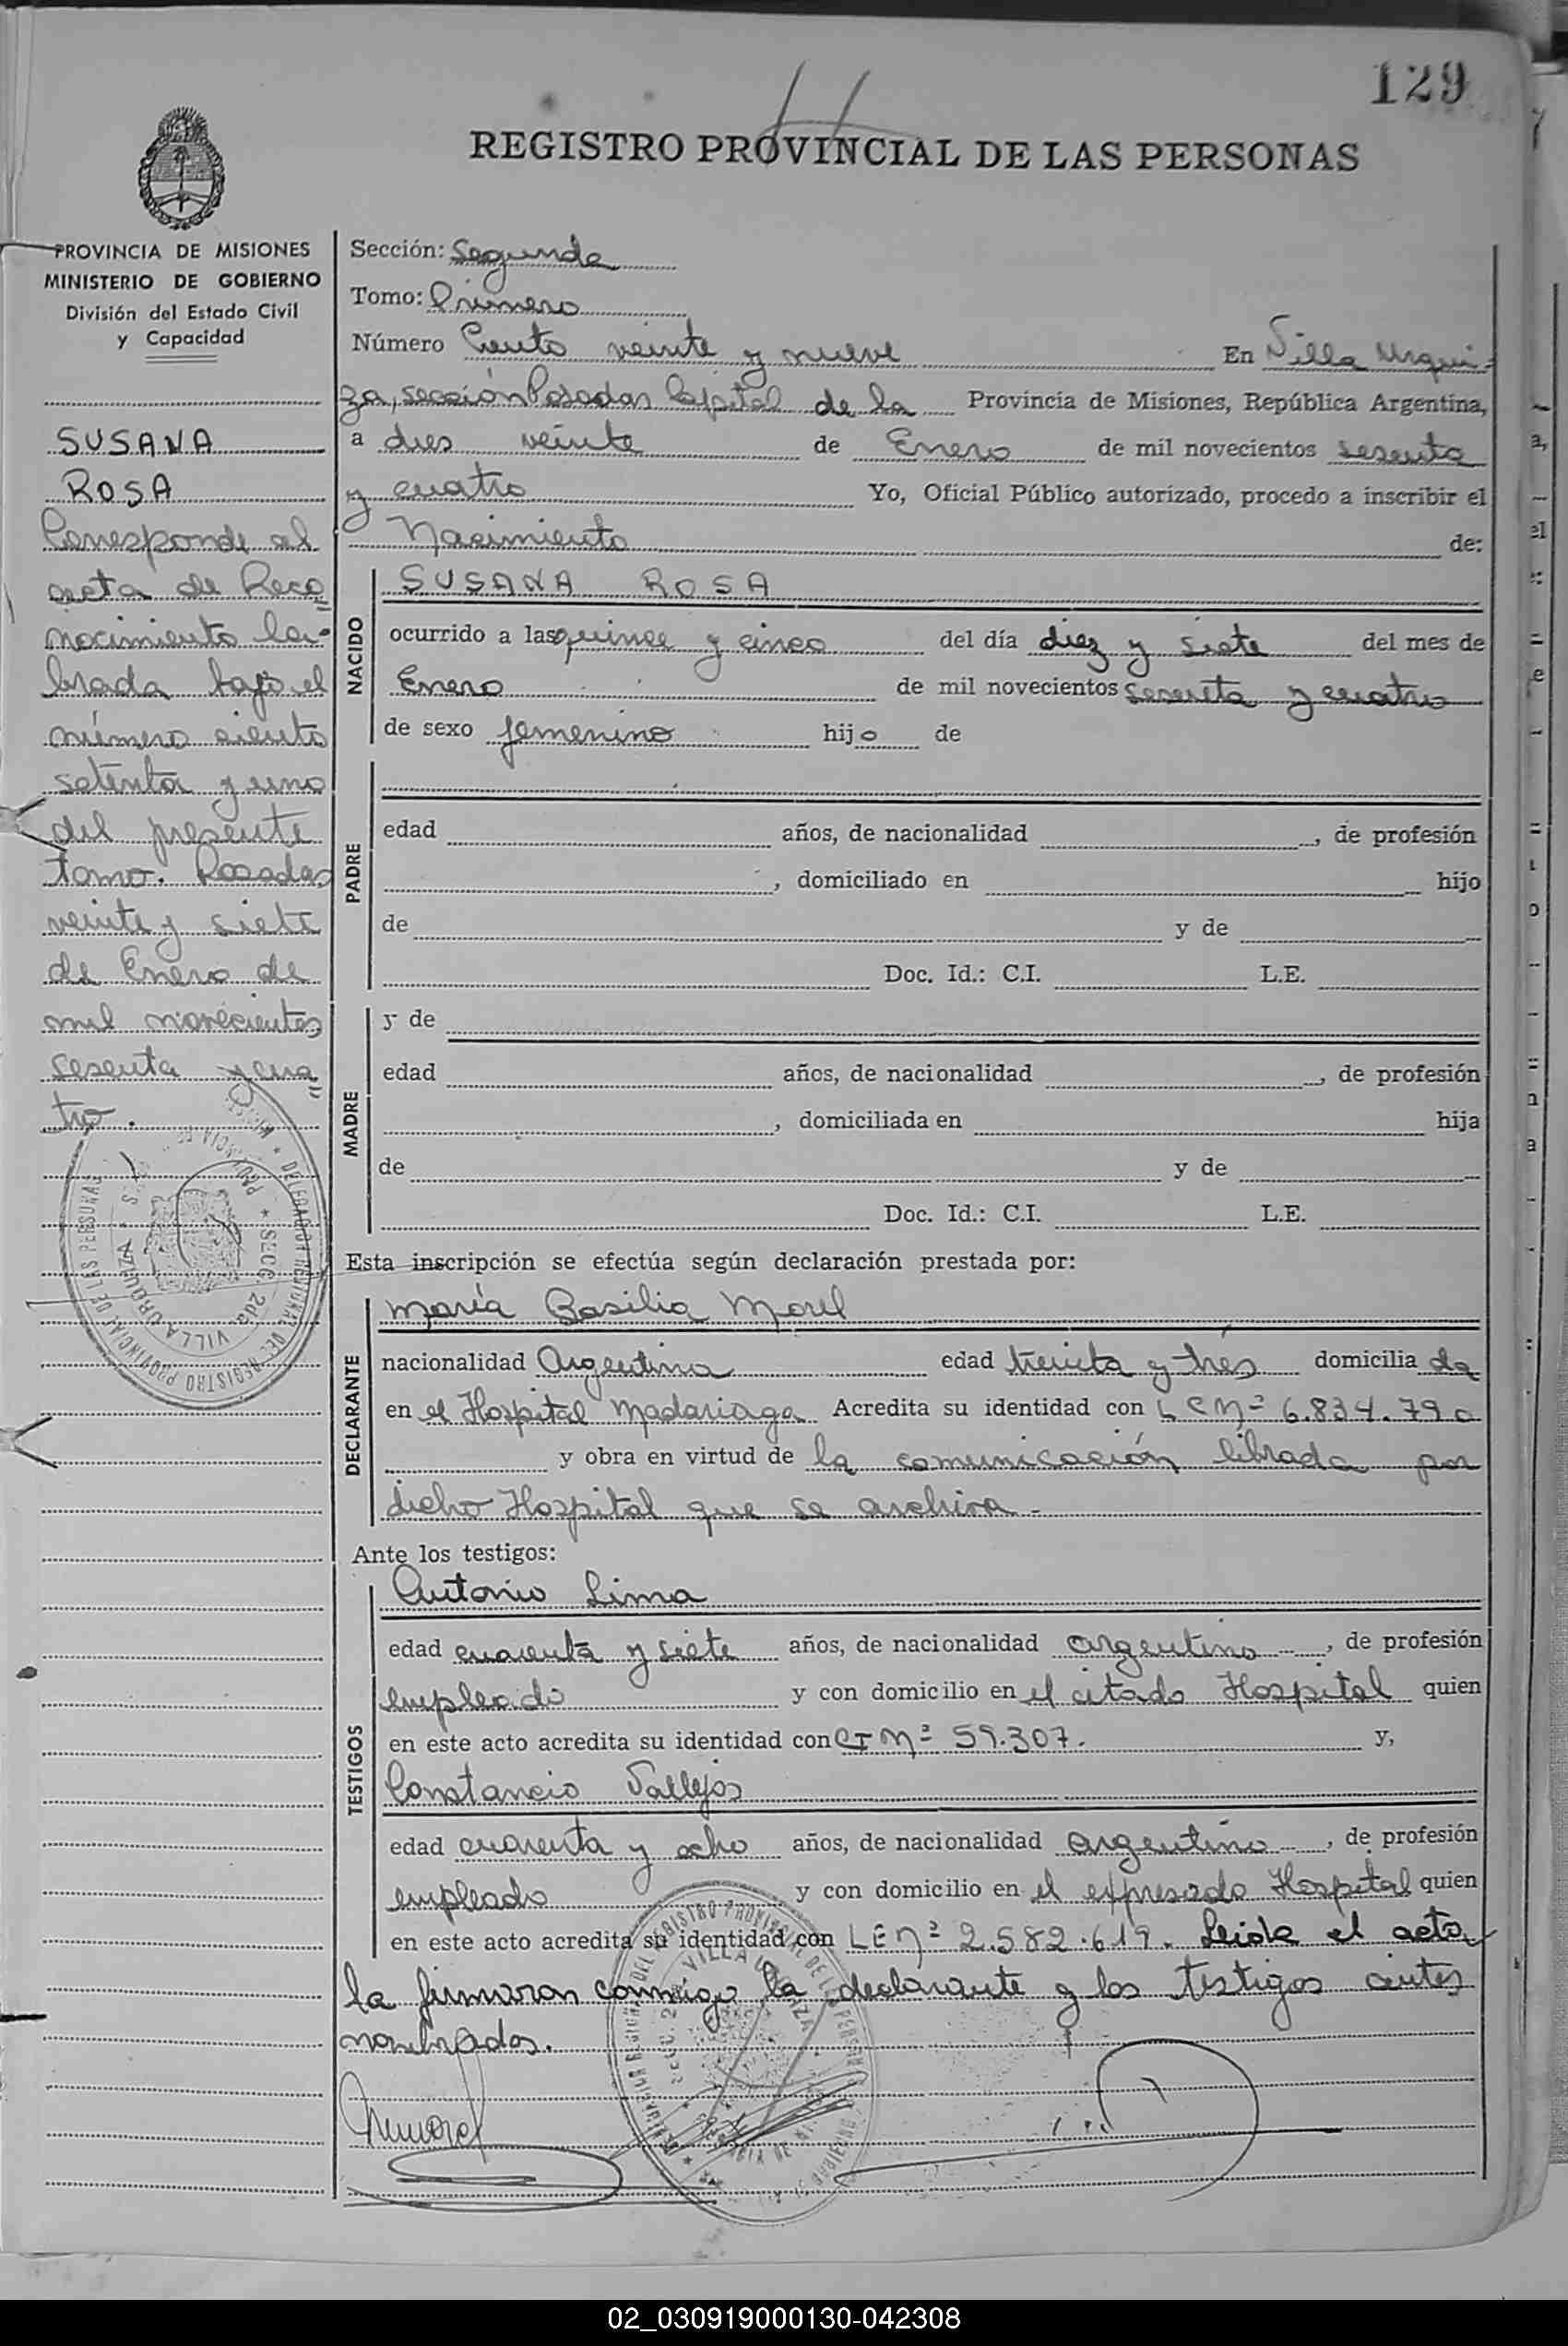 129
REGISTRO PROVINCIAL DE LAS PERSONAS
PROVINCIA DE MISIONES
MINISTERIO DE GOBIERNO
División del Estado Civil
y Capacidad
SUSANA
ROSA
Corresponde al
acta de Reco=
nocimiento la=
brada bajo el
número ciento
setenta y uno
del presente
tomo. Posadas
veinte y siete
de Enero de
mil novecientos
sesenta y cua=
tro.
Sección: Segunda
Tomo: Primero
Número Ciento veinte y nueve En Villa Urqui-
za, sección Posadas Capital de la Provincia de Misiones, República Argentina,
a dies veinte de Enero de mil novecientos sesenta
y cuatro Yo, Oficial Público autorizado, procedo a inscribir el
Nacimiento de:
NACIDO
SUSANA ROSA
ocurrido a las quince y cinco del día diez y siete del mes de
Enero de mil novecientos sesenta y cuatro
de sexo femenino hijo de
PADRE
edad años, de nacionalidad , de profesión
, domiciliado en hijo
de y de
Doc. Id.: C.I. L.E.
MADRE
y de
edad años, de nacionalidad , de profesión
, domiciliada en hija
de y de
Doc. Id.: C.I. L.E.
Esta inscripción se efectúa según declaración prestada por:
DECLARANTE
María Basilia Morel
nacionalidad Argentina edad treinta y tres domicilia da
en el Hospital Madariaga Acredita su identidad con L C Nº 6.834.790
y obra en virtud de la comunicación librada por
dicho Hospital que se archiva -
Ante los testigos:
TESTIGOS
Antonio Lima
edad cuarenta y siete años, de nacionalidad argentino , de profesión
empleado y con domicilio en el citado Hospital quien
en este acto acredita su identidad con CI Nº 59.307. y,
Constancio Vallejos
edad cuarenta y ocho años, de nacionalidad argentino , de profesión
empleado y con domicilio en el expresado Hospital quien
en este acto acredita su identidad con LE Nº 2.582.619. Leida el acta,
la firmaron conmigo la declarante y los testigos antes
nombrados.
02_030919000130-042308